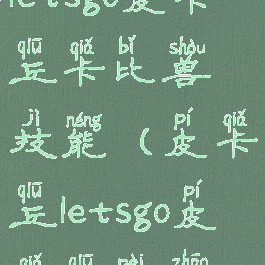 letsgo皮卡
qiū qiǎ bǐ shòu
丘卡比兽
jì néng pí qiǎ
技能（皮卡
qiū pí
丘letsgo皮